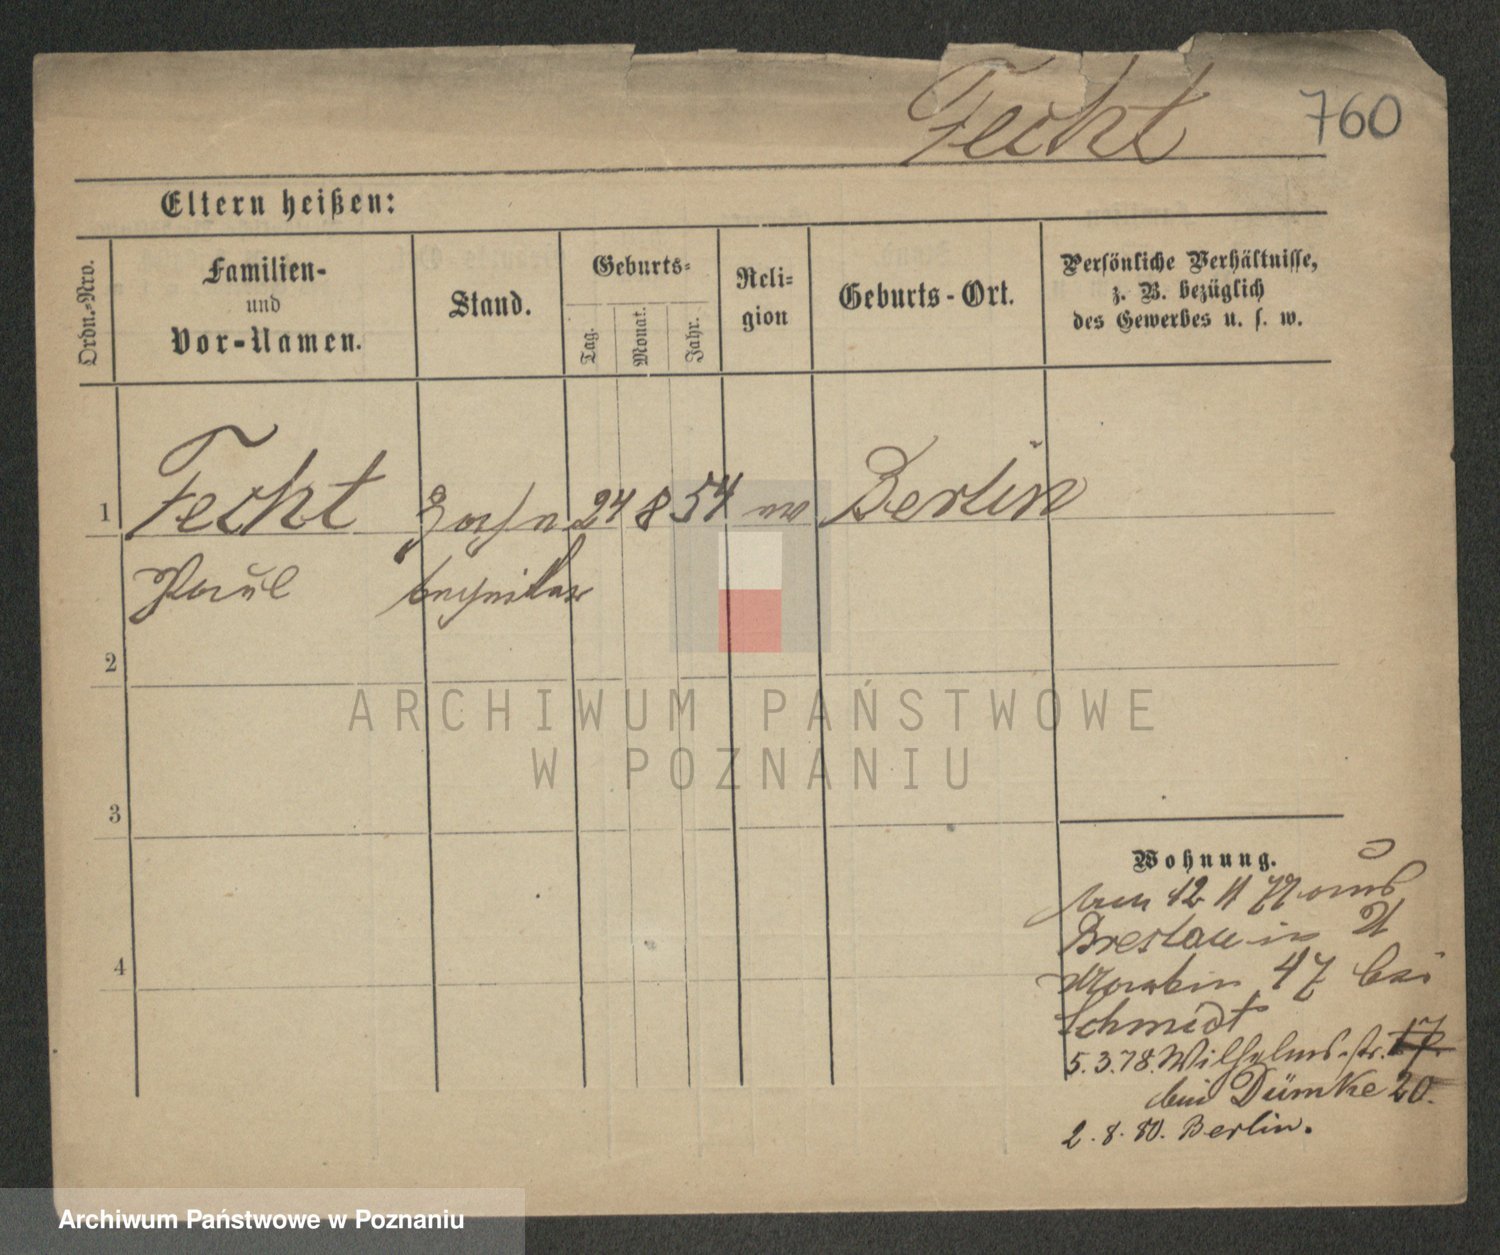 Fecht 760
Eltern heißen:
Ordn.-Nro.
Familien-
und
Vor-Namen.
Stand.
Geburts-
Tag.
Monat.
Jahr.
Reli-
gion
Geburts-Ort.
Persönliche Verhältnisse,
z. B. bezüglich
des Gewerbes u. s. w.
1 Fecht 24 8 54 Berlin
Paul
2
3
4
Wohnung.
12 11 77 aus
Breslau in
47 bei
Schmidt
5.3.78. Wilhelmsstr. 17.
bei Dümke 20.
2.8.80. Berlin.
ARCHIWUM PAŃSTWOWE
W POZNANIU
Archiwum Państwowe w Poznaniu